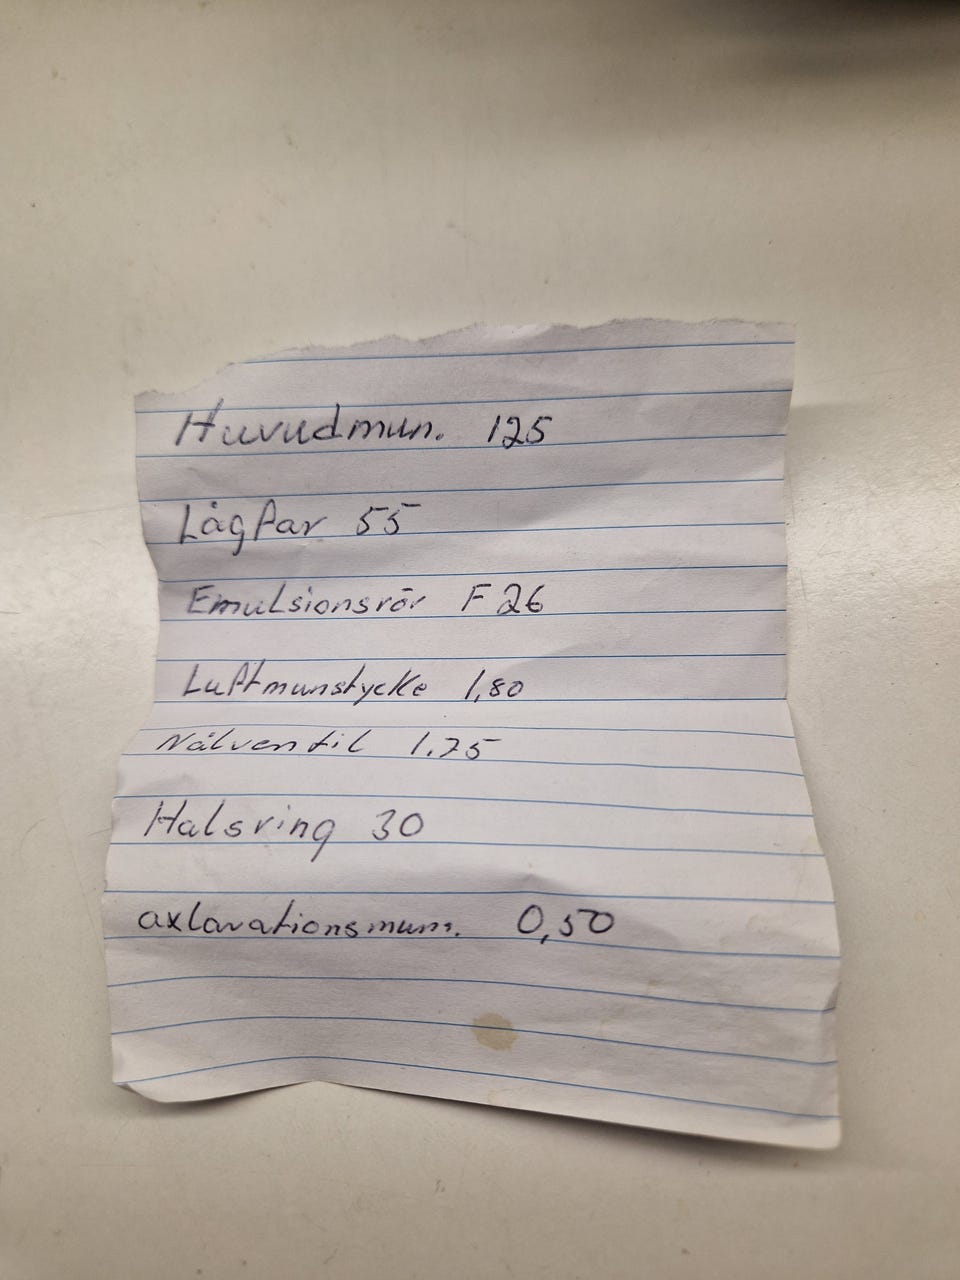 Huvudmun. 125
Lågfar 55
Emulsionsrör F26
Luftmunstycke 1,80
Nålventil 1.75
Halsring 30
axlarationsmun. 0,50